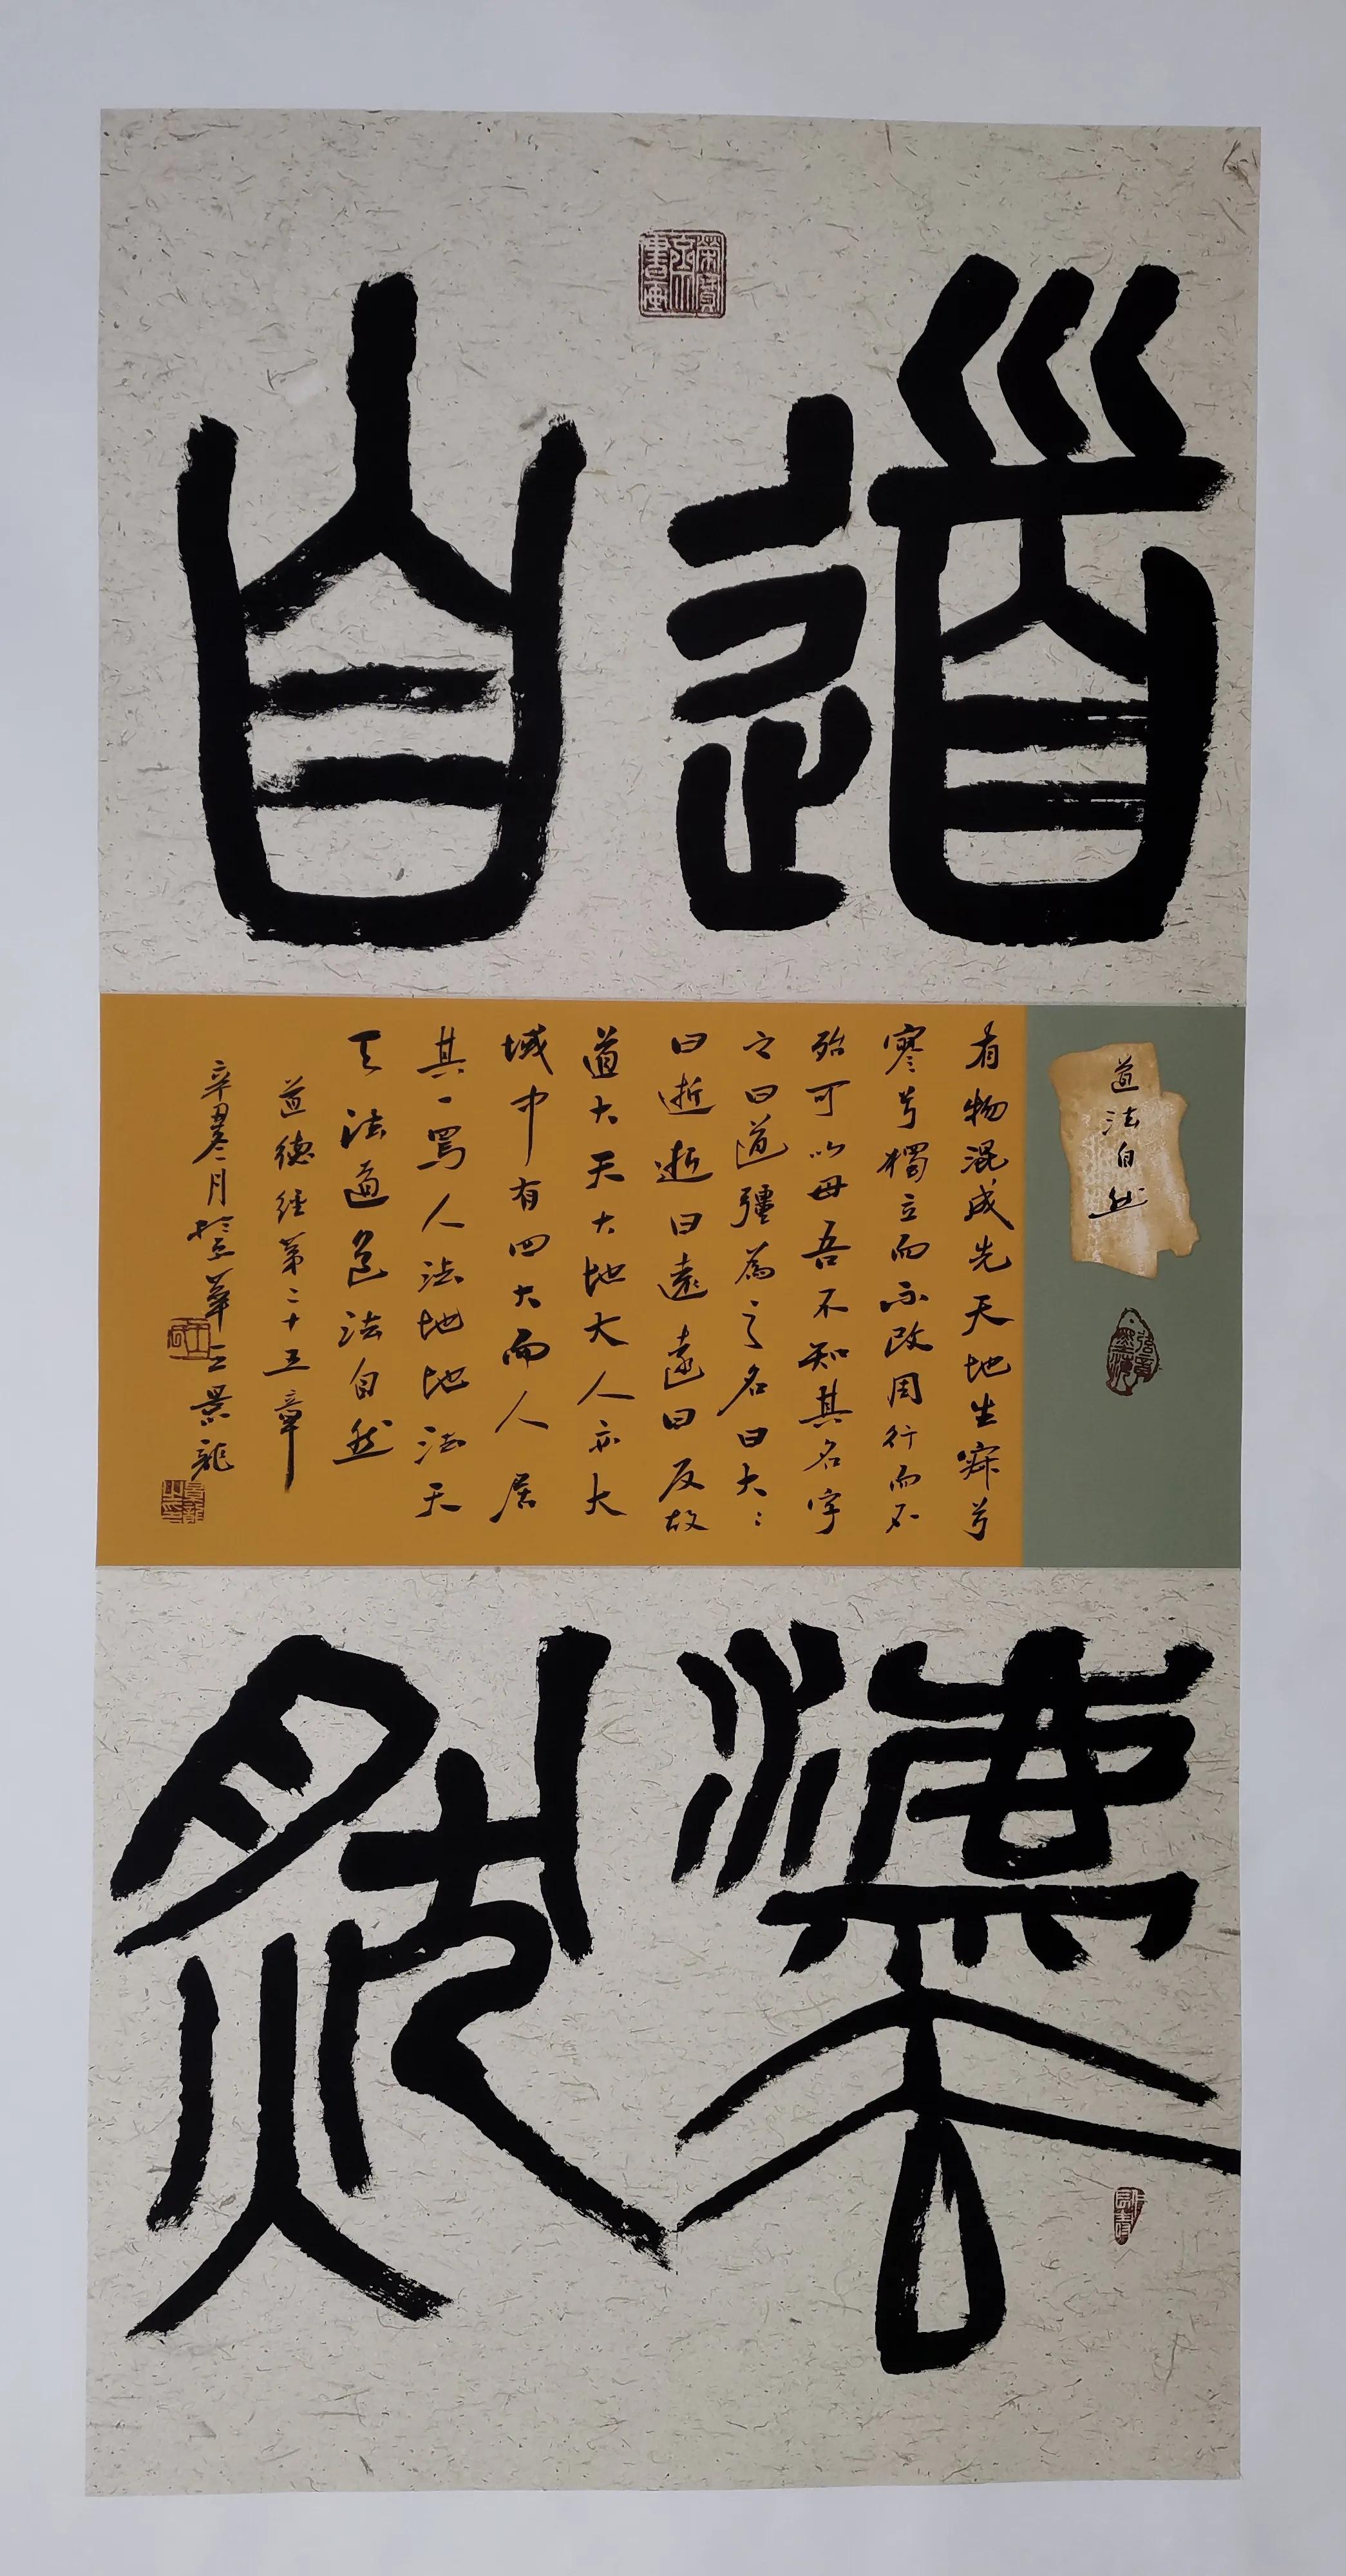 道灋
自然
道法自然
有物混成先天地生寂兮
寥兮獨立而不改周行而不
殆可以母吾不知其名字
之曰道彊為之名曰大:
曰逝逝曰遠遠曰反故
道大天大地大人亦大
域中有四大而人居
其一焉人法地地法天
天法道道法自然
道德經第二十五章
辛丑月於華王景龍
榮寶齋書畫
景龍之印